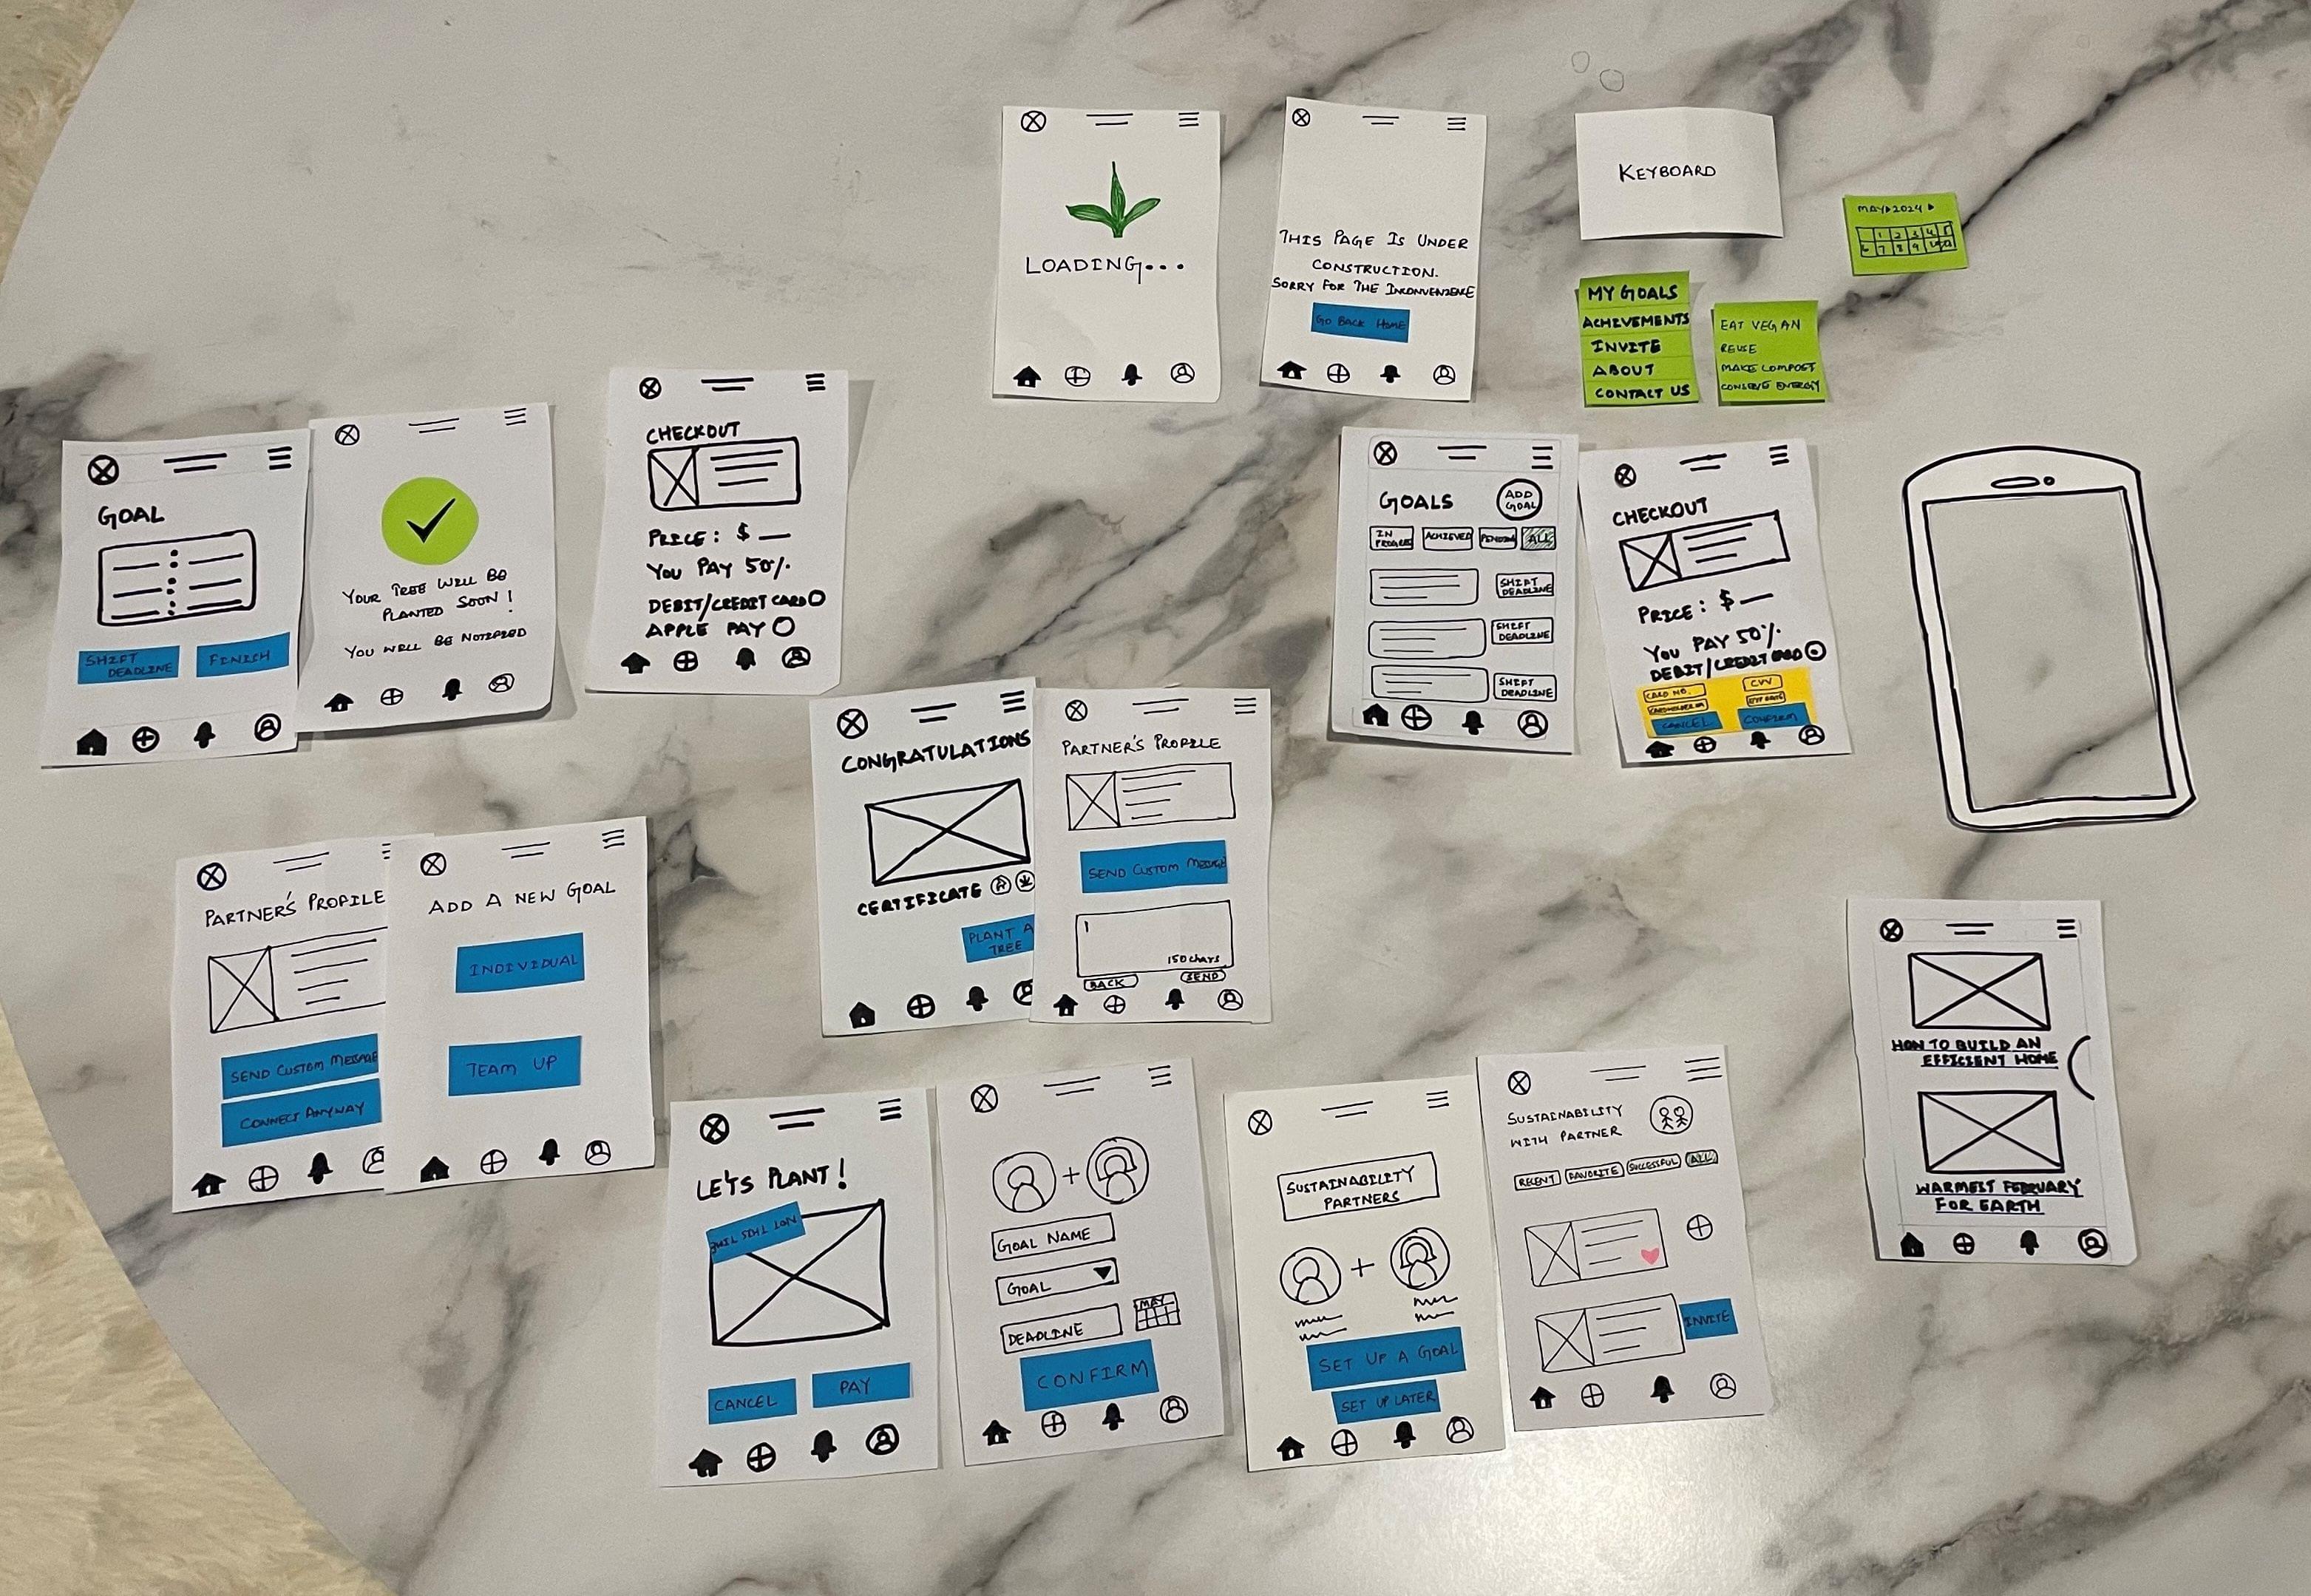 LOADING...
THIS PAGE IS UNDER
CONSTRUCTION.
SORRY FOR THE INCONVENIENCE
GO BACK HOME
KEYBOARD
MAY 2024
1 2 3 4 5
6 7 8 9
MY GOALS
ACHIEVEMENTS
INVITE
ABOUT
CONTACT US
EAT VEGAN
REUSE
MAKE COMPOST
CONSERVE ENERGY
GOAL
SHIFT
DEADLINE
FINISH
YOUR TREE WILL BE
PLANTED SOON!
YOU WILL BE NOTIFIED
CHECKOUT
PRICE: $
YOU PAY 50%
DEBIT/CREDIT CARD
APPLE PAY
GOALS
ADD
GOAL
IN
PROGRESS
ACHIEVED
PENDING
ALL
SHIFT
DEADLINE
SHIFT
DEADLINE
SHIFT
DEADLINE
CHECKOUT
PRICE: $
YOU PAY 50%
DEBIT/CREDIT CARD
CARD NO.
CVV
CANCEL
CONFIRM
CONGRATULATIONS
CERTIFICATE
PLANT A
TREE
PARTNER'S PROFILE
SEND CUSTOM MESSAGE
150 chars
BACK
SEND
PARTNER'S PROFILE
SEND CUSTOM MESSAGE
CONNECT ANYWAY
ADD A NEW GOAL
INDIVIDUAL
TEAM UP
HOW TO BUILD AN
EFFICIENT HOME
WARMEST FEBRUARY
FOR EARTH
LET'S PLANT!
NOT THIS TIME
CANCEL
PAY
GOAL NAME
GOAL
DEADLINE
MAY
CONFIRM
SUSTAINABILITY
PARTNERS
SET UP A GOAL
SET UP LATER
SUSTAINABILITY
WITH PARTNER
RECENT
FAVORITE
SUCCESSFUL
ALL
INVITE